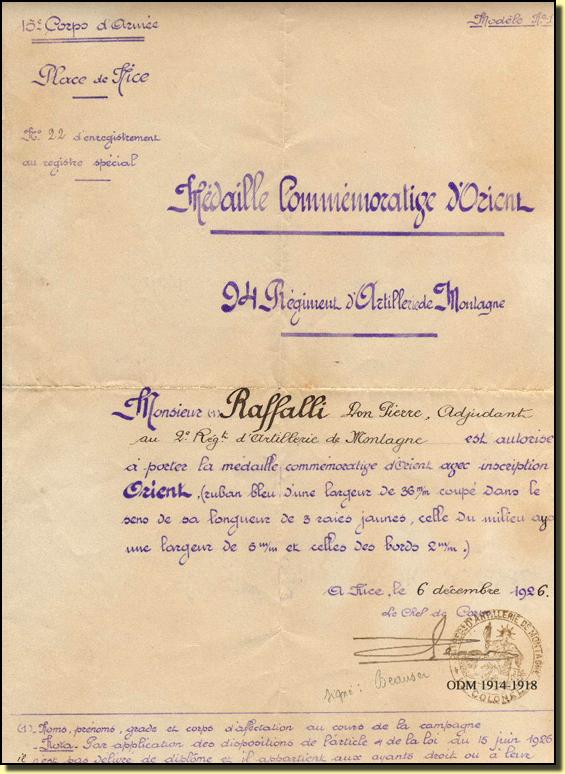 15e Corps d'Armée
Modèle No 1
Place de Nice
No 22 d'enregistrement
au registre spécial
Médaille Commémorative d'Orient
94 Régiment d'Artillerie de Montagne
Monsieur (1) Raffalli Don Pierre, Adjudant
au 2e Régt d'Artillerie de Montagne est autorisé
à porter la médaille commémorative d'Orient avec inscription
Orient, (ruban bleu d'une largeur de 36 m/m coupé dans le
sens de sa longueur de 3 raies jaunes, celle du milieu aya
une largeur de 5 m/m et celles des bords 2 m/m.)
A Nice, le 6 décembre 1926.
Le Chef de Corps
D'ARTILLERIE DE MONTAGNE
COLONEL
signé:
ODM 1914-1918
(1) - Noms, prénoms, grade et corps d'affectation au cours de la campagne
- Nota - Par application des dispositions de l'article 4 de la loi du 15 juin 1926
il n'est pas délivré de diplôme et il appartient aux ayants droit ou à leur